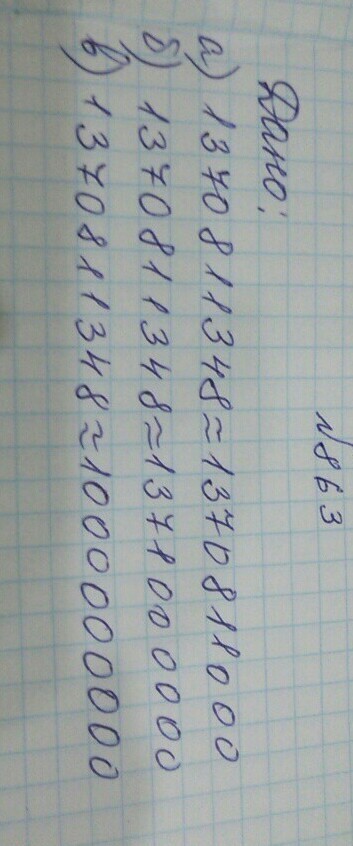 №863
Дано:
а) 1370811348≈1370811000
б) 1370811348≈1371000000
в) 1370811348≈1000000000